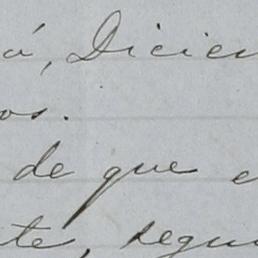 á, Dicien
os.
de que e
te, segu